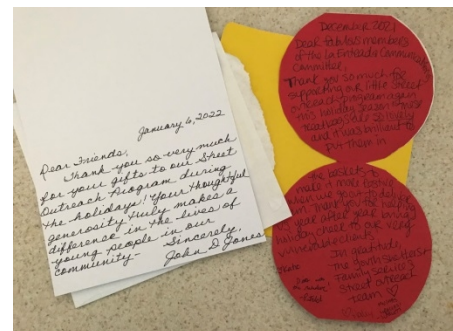 January 6, 2022
Dear Friends,
Thank you so very much
for your gifts to our Street
Outreach Program during
the holidays! Your thoughtful
generosity truly makes a
difference in the lives of
young people in our
community-
Sincerely,
John D. Jones
December 2021
Dear fabulous members
of the La Entrada Community
Committee,
Thank you so much for
supporting our little Street
outreach program again
this holiday season. These
so lovely
and it was brilliant to
put them in
the baskets to
make it more festive
when we
Thank you for helping
year after year bring
holiday cheer to our very
vulnerable clients.
In gratitude,
The Youth Shelters
Family Services
Street Outreach
Team